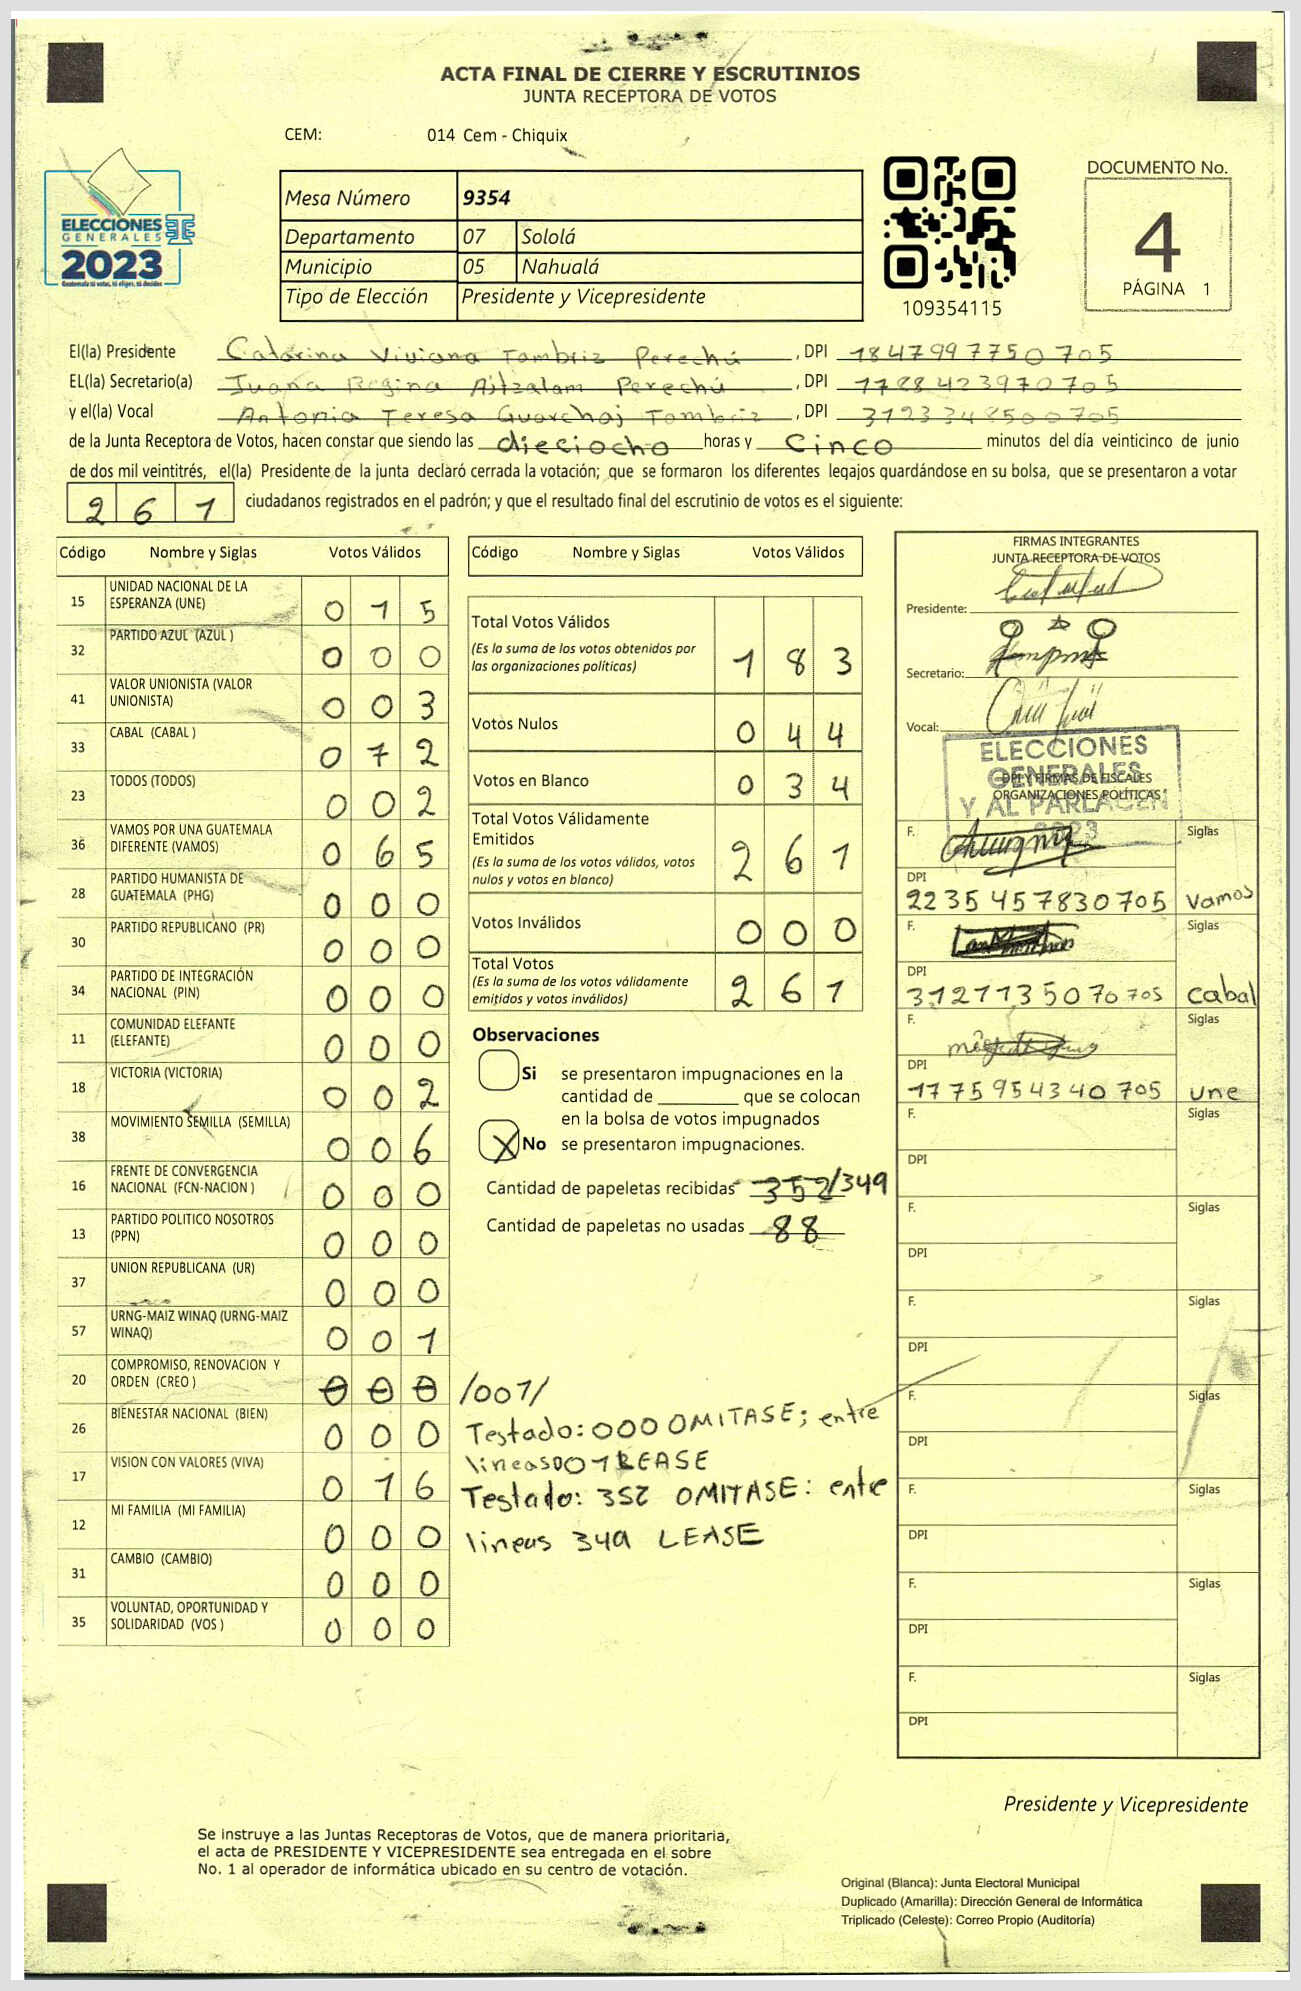 ACTA FINAL DE CIERRE Y ESCRUTINIOS
JUNTA RECEPTORA DE VOTOS
CEM: 014 Cem - Chiquix
ELECCIONES
GENERALES
2023
Guatemala tú votas, tú eliges, tú decides
Mesa Número 9354
Departamento 07 Sololá
Municipio 05 Nahualá
Tipo de Elección Presidente y Vicepresidente
109354115
DOCUMENTO No.
4
PÁGINA 1
El(la) Presidente Catarina Viviana Tambriz Perechú, DPI 1847997750705
EL(la) Secretario(a) Juana Regina Aitzalam Perechú, DPI 1788423970705
y el(la) Vocal Antonia Teresa Guarchaj Tambriz, DPI 3123348500705
de la Junta Receptora de Votos, hacen constar que siendo las dieciocho horas y Cinco minutos del día veinticinco de junio
de dos mil veintitrés, el(la) Presidente de la junta declaró cerrada la votación; que se formaron los diferentes legajos quardándose en su bolsa, que se presentaron a votar
261 ciudadanos registrados en el padrón; y que el resultado final del escrutinio de votos es el siguiente:
Código Nombre y Siglas Votos Válidos
15 UNIDAD NACIONAL DE LA ESPERANZA (UNE) 015
32 PARTIDO AZUL (AZUL ) 000
41 VALOR UNIONISTA (VALOR UNIONISTA) 003
33 CABAL (CABAL ) 072
23 TODOS (TODOS) 002
36 VAMOS POR UNA GUATEMALA DIFERENTE (VAMOS) 065
28 PARTIDO HUMANISTA DE GUATEMALA (PHG) 000
30 PARTIDO REPUBLICANO (PR) 000
34 PARTIDO DE INTEGRACIÓN NACIONAL (PIN) 000
11 COMUNIDAD ELEFANTE (ELEFANTE) 000
18 VICTORIA (VICTORIA) 002
38 MOVIMIENTO SEMILLA (SEMILLA) 006
16 FRENTE DE CONVERGENCIA NACIONAL (FCN-NACION ) 000
13 PARTIDO POLITICO NOSOTROS (PPN) 000
37 UNION REPUBLICANA (UR) 000
57 URNG-MAIZ WINAQ (URNG-MAIZ WINAQ) 001
20 COMPROMISO, RENOVACION Y ORDEN (CREO ) 000 /001/
26 BIENESTAR NACIONAL (BIEN) 000
17 VISION CON VALORES (VIVA) 016
12 MI FAMILIA (MI FAMILIA) 000
31 CAMBIO (CAMBIO) 000
35 VOLUNTAD, OPORTUNIDAD Y SOLIDARIDAD (VOS ) 000
Código Nombre y Siglas Votos Válidos
Total Votos Válidos 183
(Es la suma de los votos obtenidos por
las organizaciones políticas)
Votos Nulos 044
Votos en Blanco 034
Total Votos Válidamente
Emitidos 261
(Es la suma de los votos válidos, votos
nulos y votos en blanco)
Votos Inválidos 000
Total Votos 261
(Es la suma de los votos válidamente
emitidos y votos inválidos)
Observaciones
Si se presentaron impugnaciones en la
cantidad de ________ que se colocan
en la bolsa de votos impugnados
X No se presentaron impugnaciones.
Cantidad de papeletas recibidas 352/349
Cantidad de papeletas no usadas 88
Testado: 000 OMITASE; entre
lineas 001 LEASE
Testado: 352 OMITASE: entre
lineas 349 LEASE
FIRMAS INTEGRANTES
JUNTA RECEPTORA DE VOTOS
Presidente:
Secretario:
Vocal:
ELECCIONES
GENERALES
Y AL PARLACEN
2023
DPI Y FIRMAS DE FISCALES
ORGANIZACIONES POLÍTICAS
F. Siglas
DPI
2235457830705 Vamos
F. Siglas
DPI
3121135070705 cabal
F. Siglas
DPI
1775954340705 une
F. Siglas
DPI
F. Siglas
DPI
F. Siglas
DPI
F. Siglas
DPI
F. Siglas
DPI
F. Siglas
DPI
F. Siglas
DPI
Presidente y Vicepresidente
Se instruye a las Juntas Receptoras de Votos, que de manera prioritaria,
el acta de PRESIDENTE Y VICEPRESIDENTE sea entregada en el sobre
No. 1 al operador de informática ubicado en su centro de votación.
Original (Blanca): Junta Electoral Municipal
Duplicado (Amarilla): Dirección General de Informática
Triplicado (Celeste): Correo Propio (Auditoría)